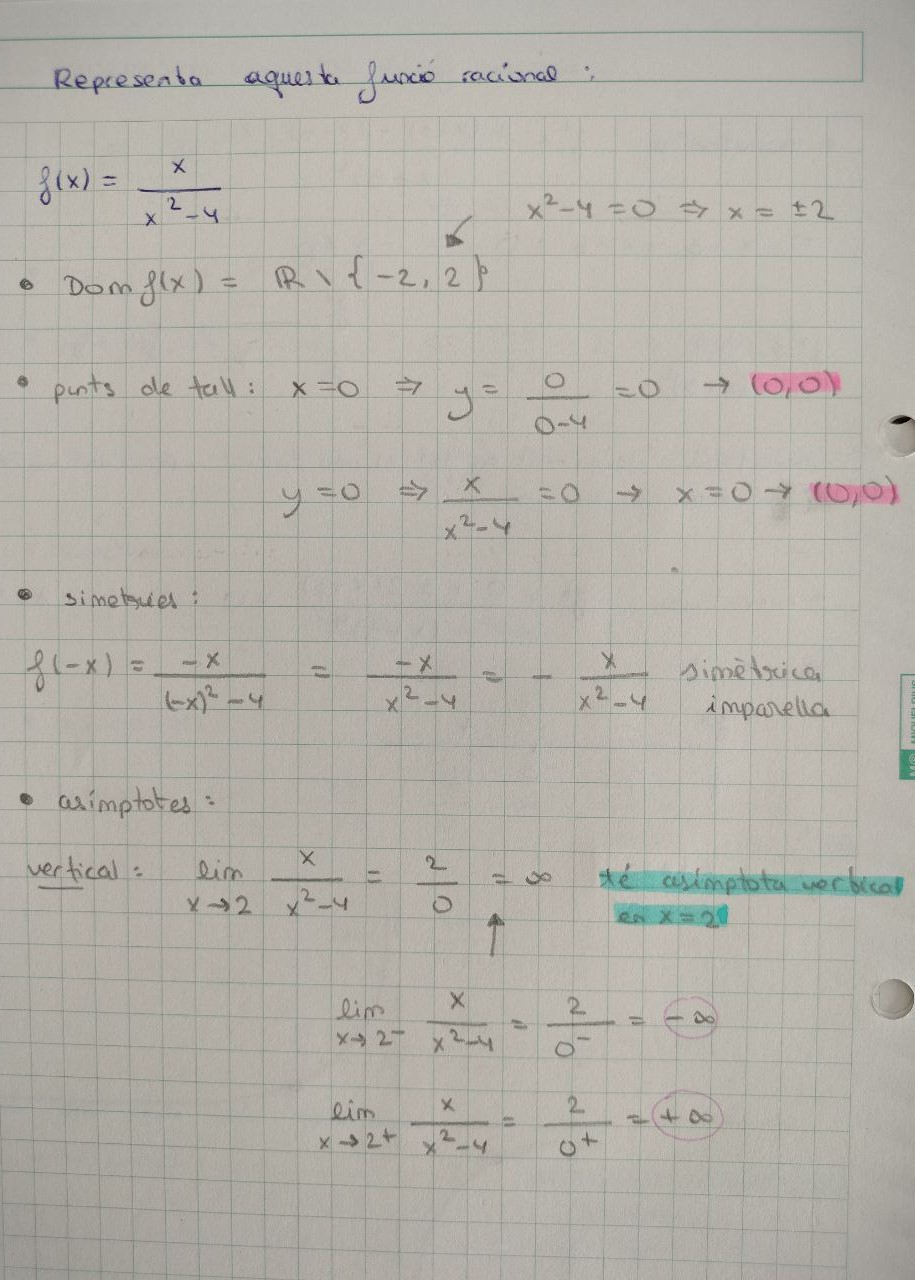 Representa aquesta funció racional :
f(x) = x / (x² - 4)
x² - 4 = 0 ⇒ x = ±2
• Dom f(x) = ℝ \ {-2, 2}
• punts de tall : x = 0 ⇒ y = 0 / (0-4) = 0 → (0,0)
y = 0 ⇒ x / (x² - 4) = 0 → x = 0 → (0,0)
• simetries :
f(-x) = -x / ((-x)² - 4) = -x / (x² - 4) = - x / (x² - 4) simètrica
imparella
• asímptotes :
vertical : lim x→2 x / (x² - 4) = 2 / 0 = ∞ té asímptota vertical
en x = 2
↑
lim x→2⁻ x / (x² - 4) = 2 / 0⁻ = - ∞
lim x→2⁺ x / (x² - 4) = 2 / 0⁺ = + ∞